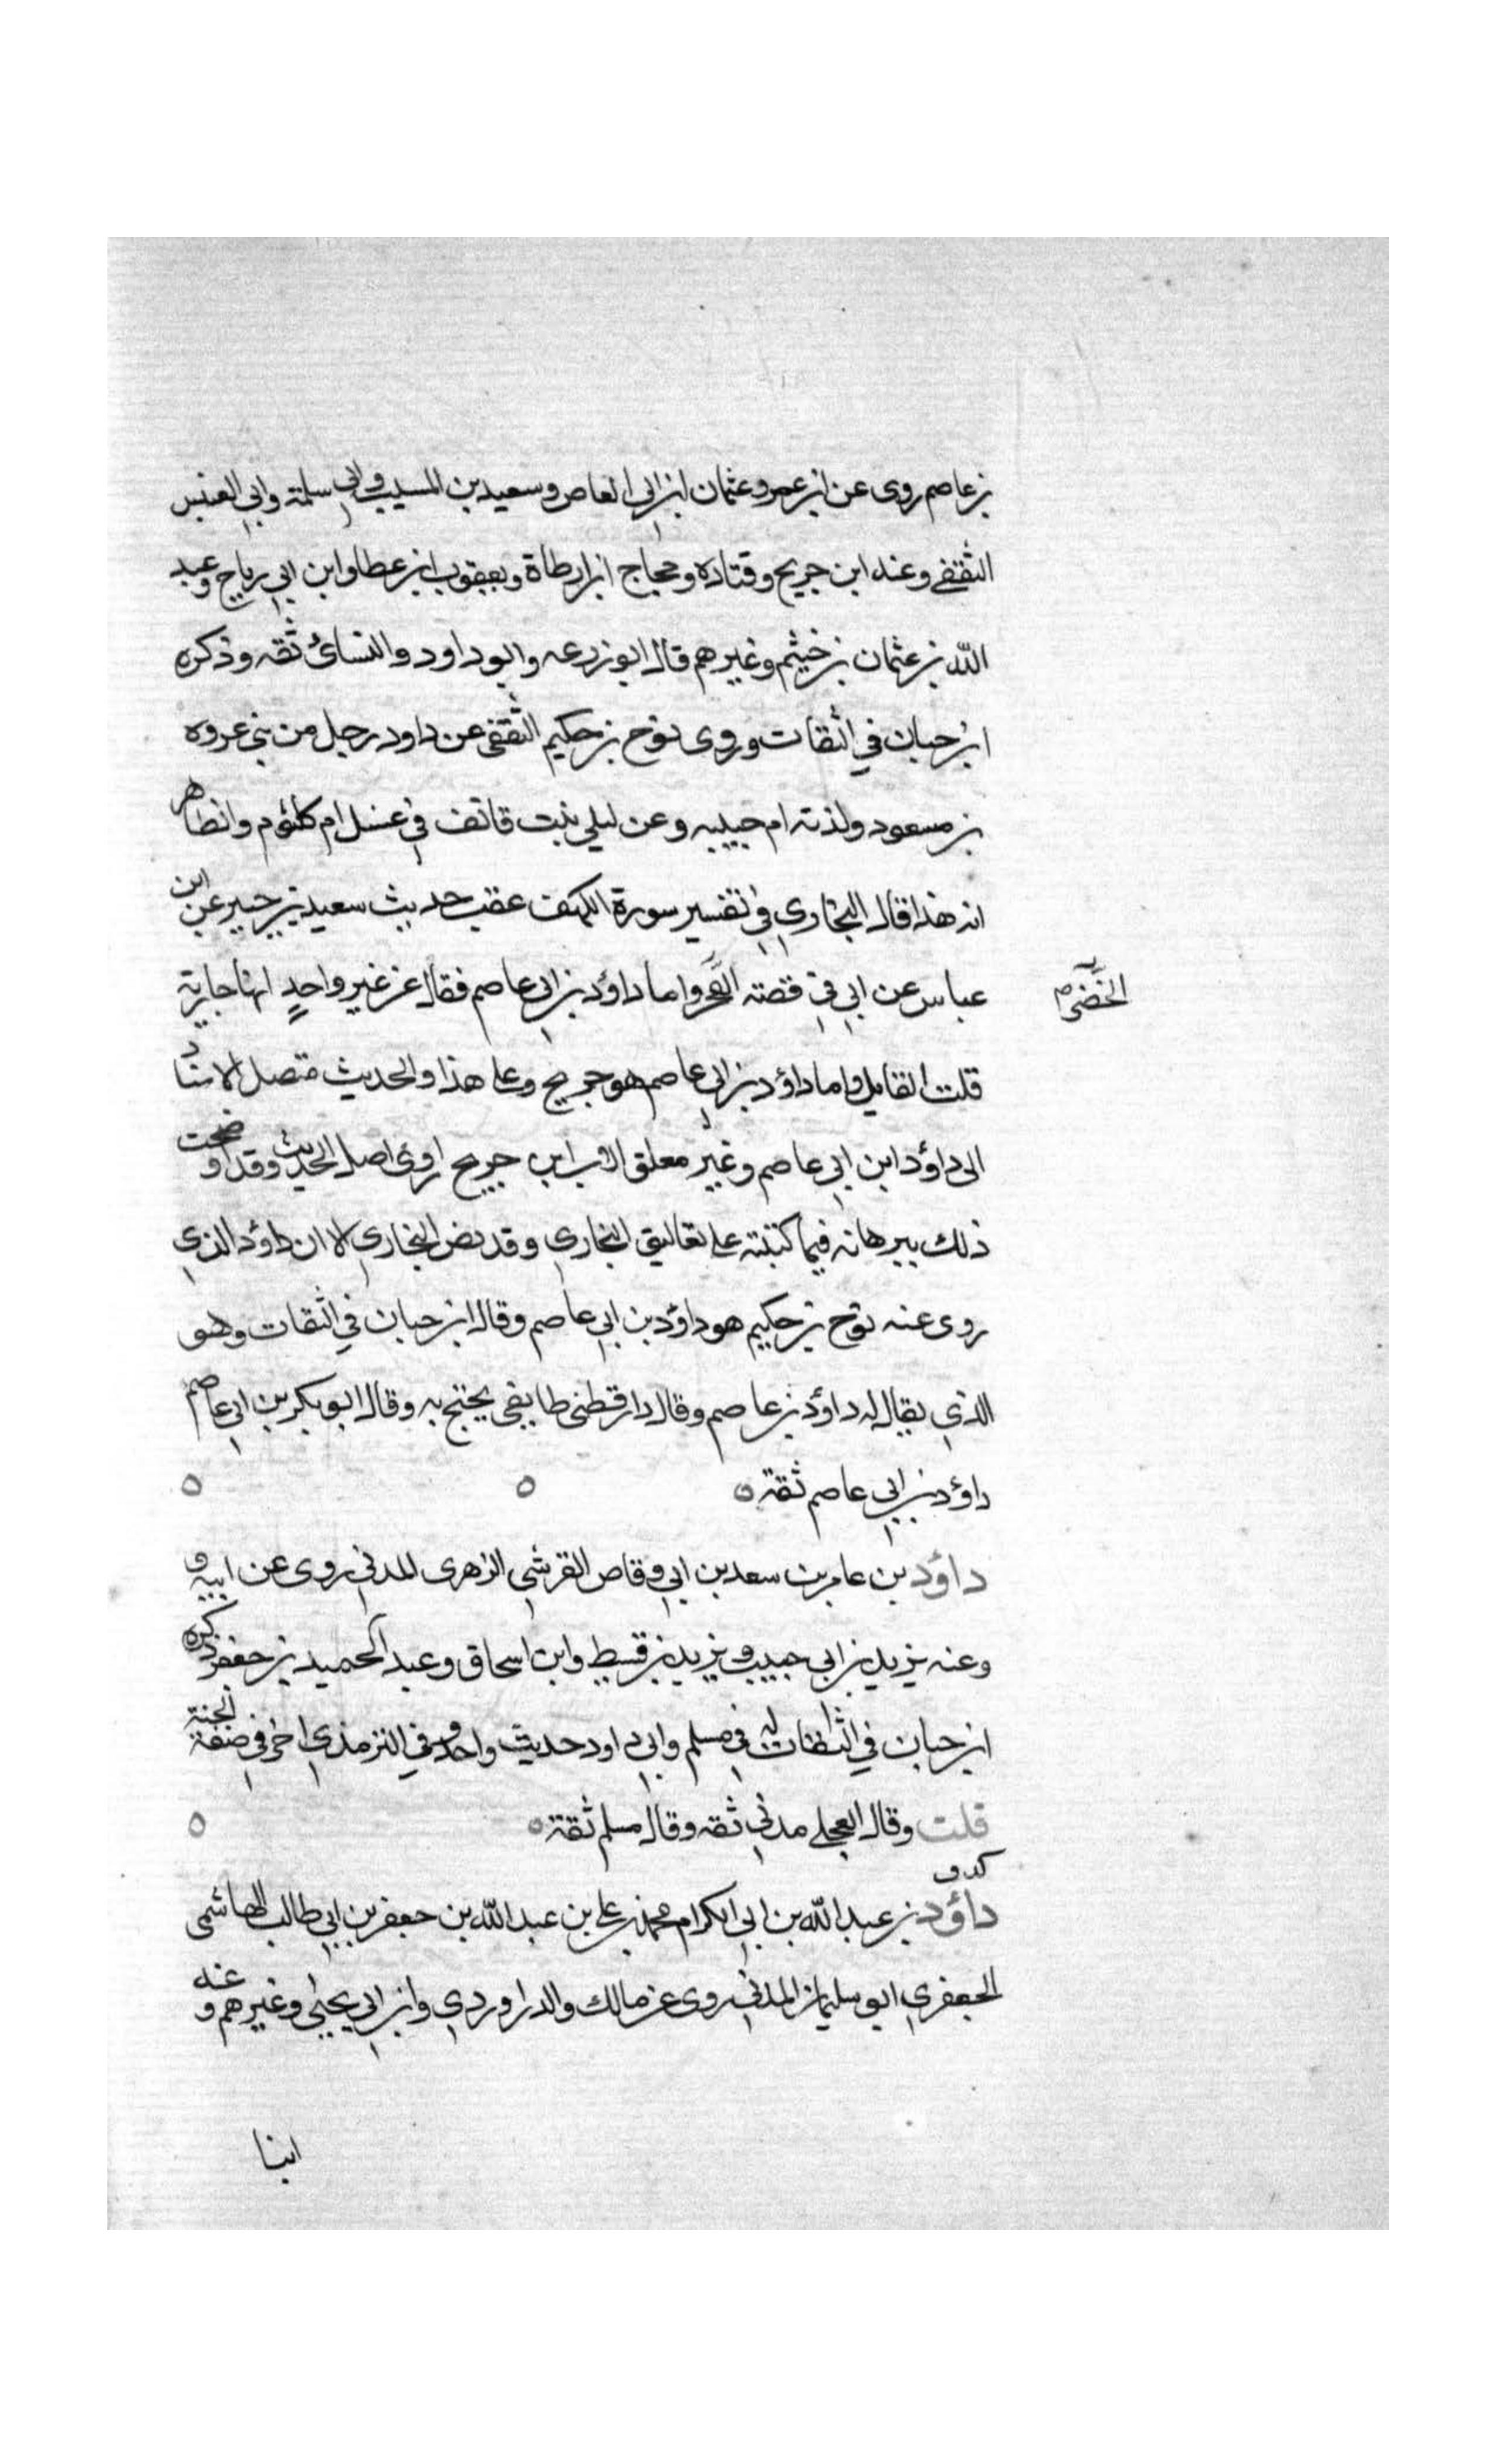 بن عاصم روى عن ابن عمرو عثمان ابن ابى العاص وسعيد بن المسيب وابي سلمة وابي العنبس
الثقفي وعنه ابن جريح وقتاده وحجاج ابن ارطاة ويعقوب ابن عطا وابن ابي رباح وعبد
الله بن عثمان بن خيثم وغيرهم قال ابو زرعه وابو داود والنسائ ثقه وذكره
ابن حبان في الثقات وروى نوح بن حكيم الثقفي عن داود رجل من بني عروه
بن مسعود ولدته ام حبيبه وعن ليلى بنت قانف في غسل ام كلثوم والظاهر
انه هذا قال البخاري في تفسير سورة الكهف عقب حديث سعيد بن جبير عن ابن
عباس عن ابي في قصته واما داؤد بن ابي عاصم فقال عن غير واحد انها جارية
الخضر م
قلت القايل واما داؤد بن ابي عاصم هو جريح وعا هذا والحديث متصل الاسناد
الى داؤد ابن ابي عاصم وغير معلق لان ابن جريح اروى اصل الحديث وقد اوضحت
ذلك ببرهانه فيما كتبته على تعاليق البخاري وقد نص البخاري لا ان داؤد الذي
روى عنه نوح بن حكيم هو داؤد بن ابي عاصم وقال ابن حبان في الثقات وهو
الذي يقال له داؤد بن عاصم وقال دار قطني طايفي يحتج به وقال ابو بكر بن ابي عاصم
داؤد بن ابي عاصم ثقة
داؤد بن عامر بن سعد بن ابي وقاص القرشي الزهرى المدني روى عن ابيه و
وعنه يزيد بن ابي حبيب ويزيد بن قسيط وابن اسحاق وعبد الحميد بن جعفر ذكره
ابن حبان في الثقات له في مسلم وابي داود حديث واحد وفي الترمذي اخر في صفة الجنة
قلت وقال العجلي مدني ثقه وقال مسلم ثقة
كد و
داؤد بن عبد الله بن ابي الكرام محمد بن علي بن عبد الله بن جعفر بن ابي طالب الهاشمى
الجعفري ابو سليمان المدني روى عن مالك والدراوردي وابن ابي يحيى وغيرهم وعنه
ابنا